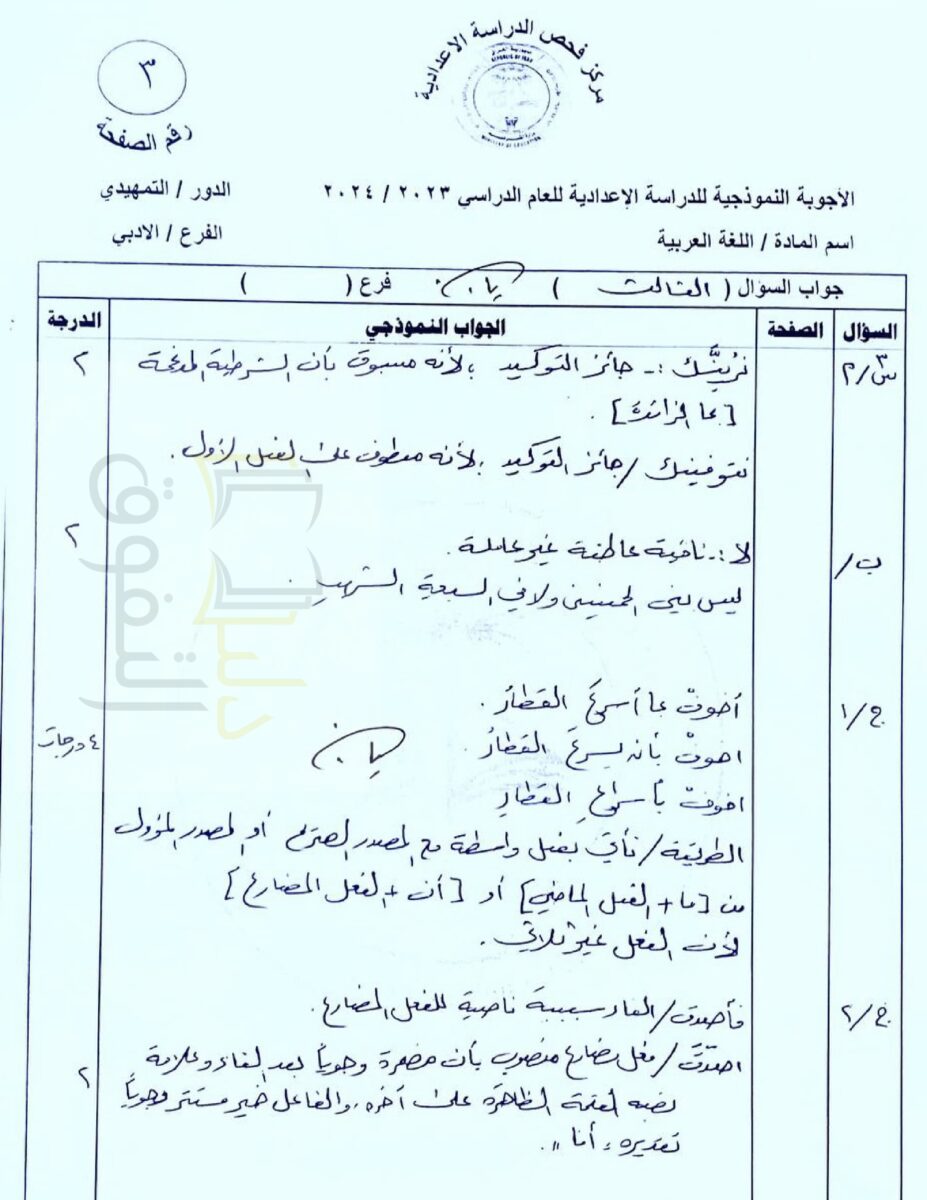 مركز فحص الدراسة الإعدادية
REPUBLIC OF IRAQ
MINISTRY OF EDUCATION
٣
رقم الصفحة
الأجوبة النموذجية للدراسة الإعدادية للعام الدراسي ٢٠٢٣ / ٢٠٢٤
الدور / التمهيدي
اسم المادة / اللغة العربية
الفرع / الادبي
جواب السؤال ( الثالث ) فرع ( )
السؤال الصفحة الجواب النموذجي الدرجة
س٣/٢ نُرِيَنَّكَ :- جائز التوكيد ؛ لأنه مسبوق بأن الشرطية المدغمة ٢
[بما الزائدة] .
نتوفينك / جائز التوكيد ؛ لأنه معطوف على الفعل الأول .
ب/ لا :- نافية عاطفة غير عاملة . ٢
ليس بني الخمسين ولا في السبعة الشهبِ .
ج/١ أخوفْ بما أسرعَ القطارُ .
اخوفْ بأن يسرعَ القطارُ .
اخوفْ بأسراعِ القطارِ ٤ درجات
الطريقة / نأتي بفعل واسطة مع المصدر الصريح أو المصدر المؤول
من [ما + الفعل الماضي] أو [أن + الفعل المضارع]
لأن الفعل غير ثلاثي .
ج/٢ فأصدق / الفاء سببية ناصبة للفعل المضارع .
اصدّقَ / فعل مضارع منصوب بأن مضمرة وجوباً بعد الفاء وعلامة ٢
نصبه الفتحة الظاهرة على آخره ، والفاعل ضمير مستتر وجوباً
تقديره "أنا" .
دار التفوق